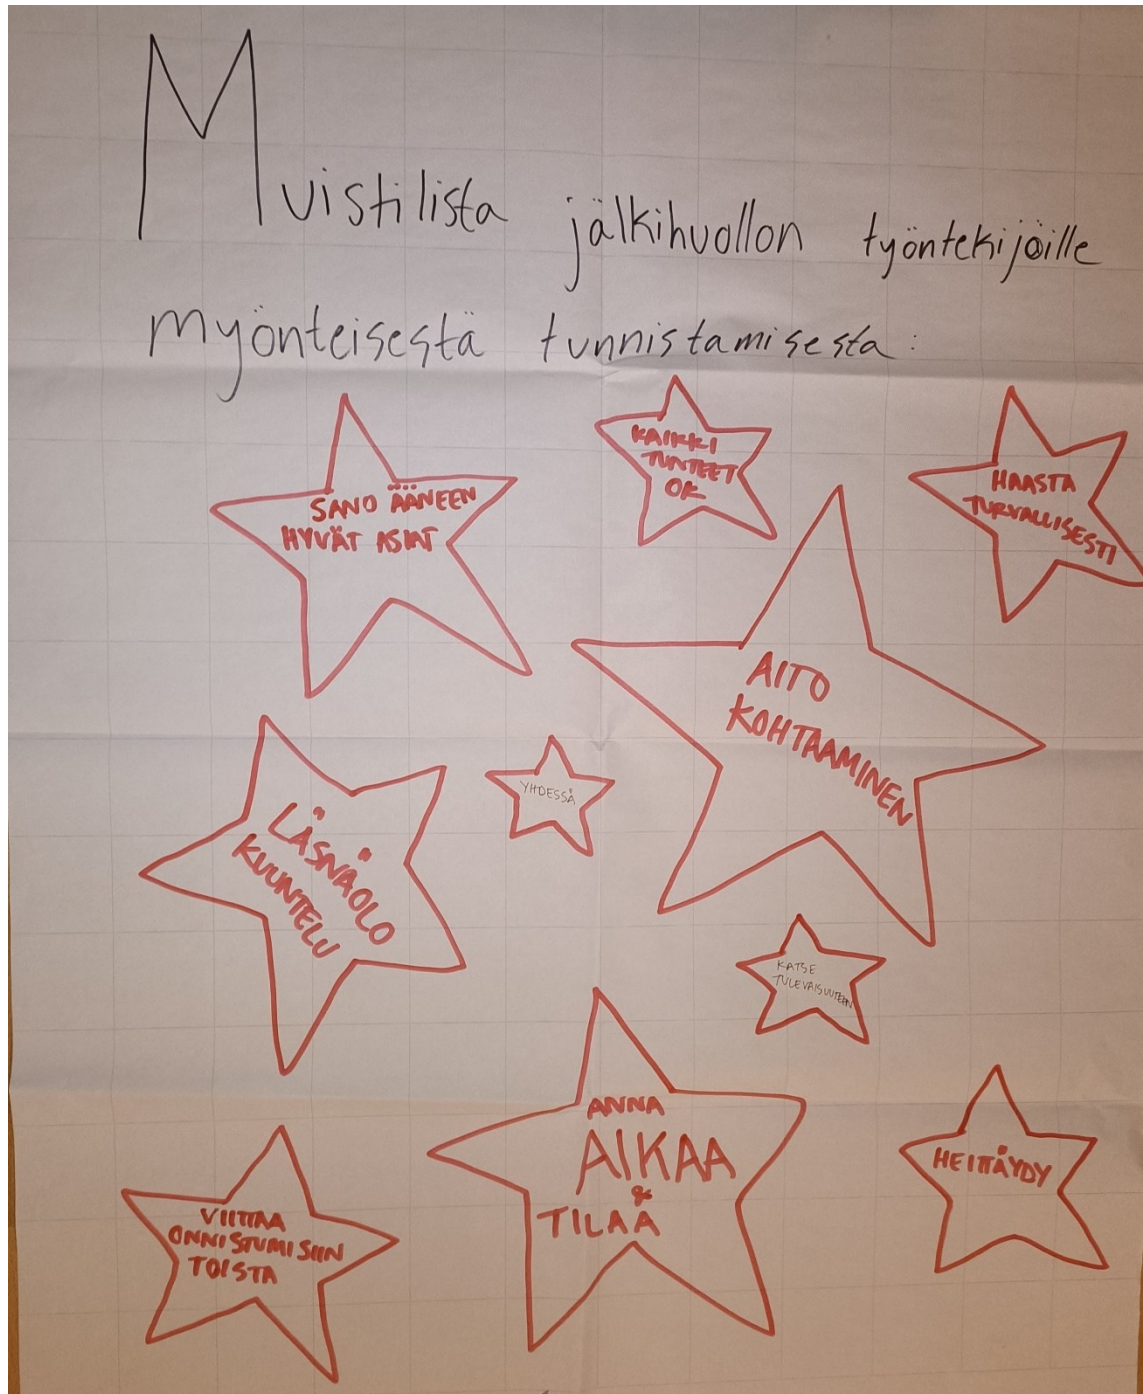 Muistilista jälkihuollon työntekijöille
myönteisestä tunnistamisesta:
SANO ÄÄNEEN
HYVÄT ASIAT
KAIKKI
TUNTEET
OK
HAASTA
TURVALLISESTI
AITO
KOHTAAMINEN
YHDESSÄ
LÄSNÄOLO
KUUNTELU
KATSE
TULEVAISUUTEEN
ANNA
AIKAA
&
TILAA
HEITTÄYDY
VIITTAA
ONNISTUMISIIN
TOISTA